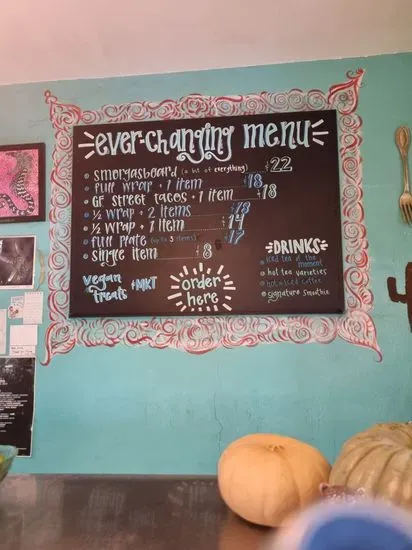 ever-changing menu
smorgasboard (a bit of everything) $22
full wrap + 1 item $18
GF street tacos + 1 item $18
½ wrap + 2 items $18
½ wrap + 1 item $14
full plate (up to 3 items) $17
single item $8
vegan treats +MKT
order here
DRINKS
iced tea of the moment
hot tea varieties
hot/iced coffee
signature smoothie